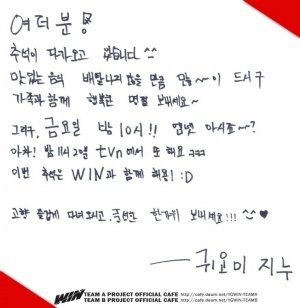 여러분~
추석이 다가오고 있습니다 ^^
맛있는 음식 배탈나지 않을 만큼 많~~이 드시구
가족과 함께 행복한 명절 보내세요~
그리구, 금요일 밤 10시!! 엠넷 아시죠~~?
아차! 밤 11시 20분 tvn에서 또 해요 ㅋㅋㅋ
이번 추석은 WIN과 함께 해용! :D
고향 즐겁게 다녀오시고, 풍성한 한가위 보내세요!!! ^^ ♥
— 귀요미 지누
WIN TEAM A PROJECT OFFICIAL CAFE http://cafe.daum.net/YGWIN-TEAMA
TEAM B PROJECT OFFICIAL CAFE http://cafe.daum.net/YGWIN-TEAMB